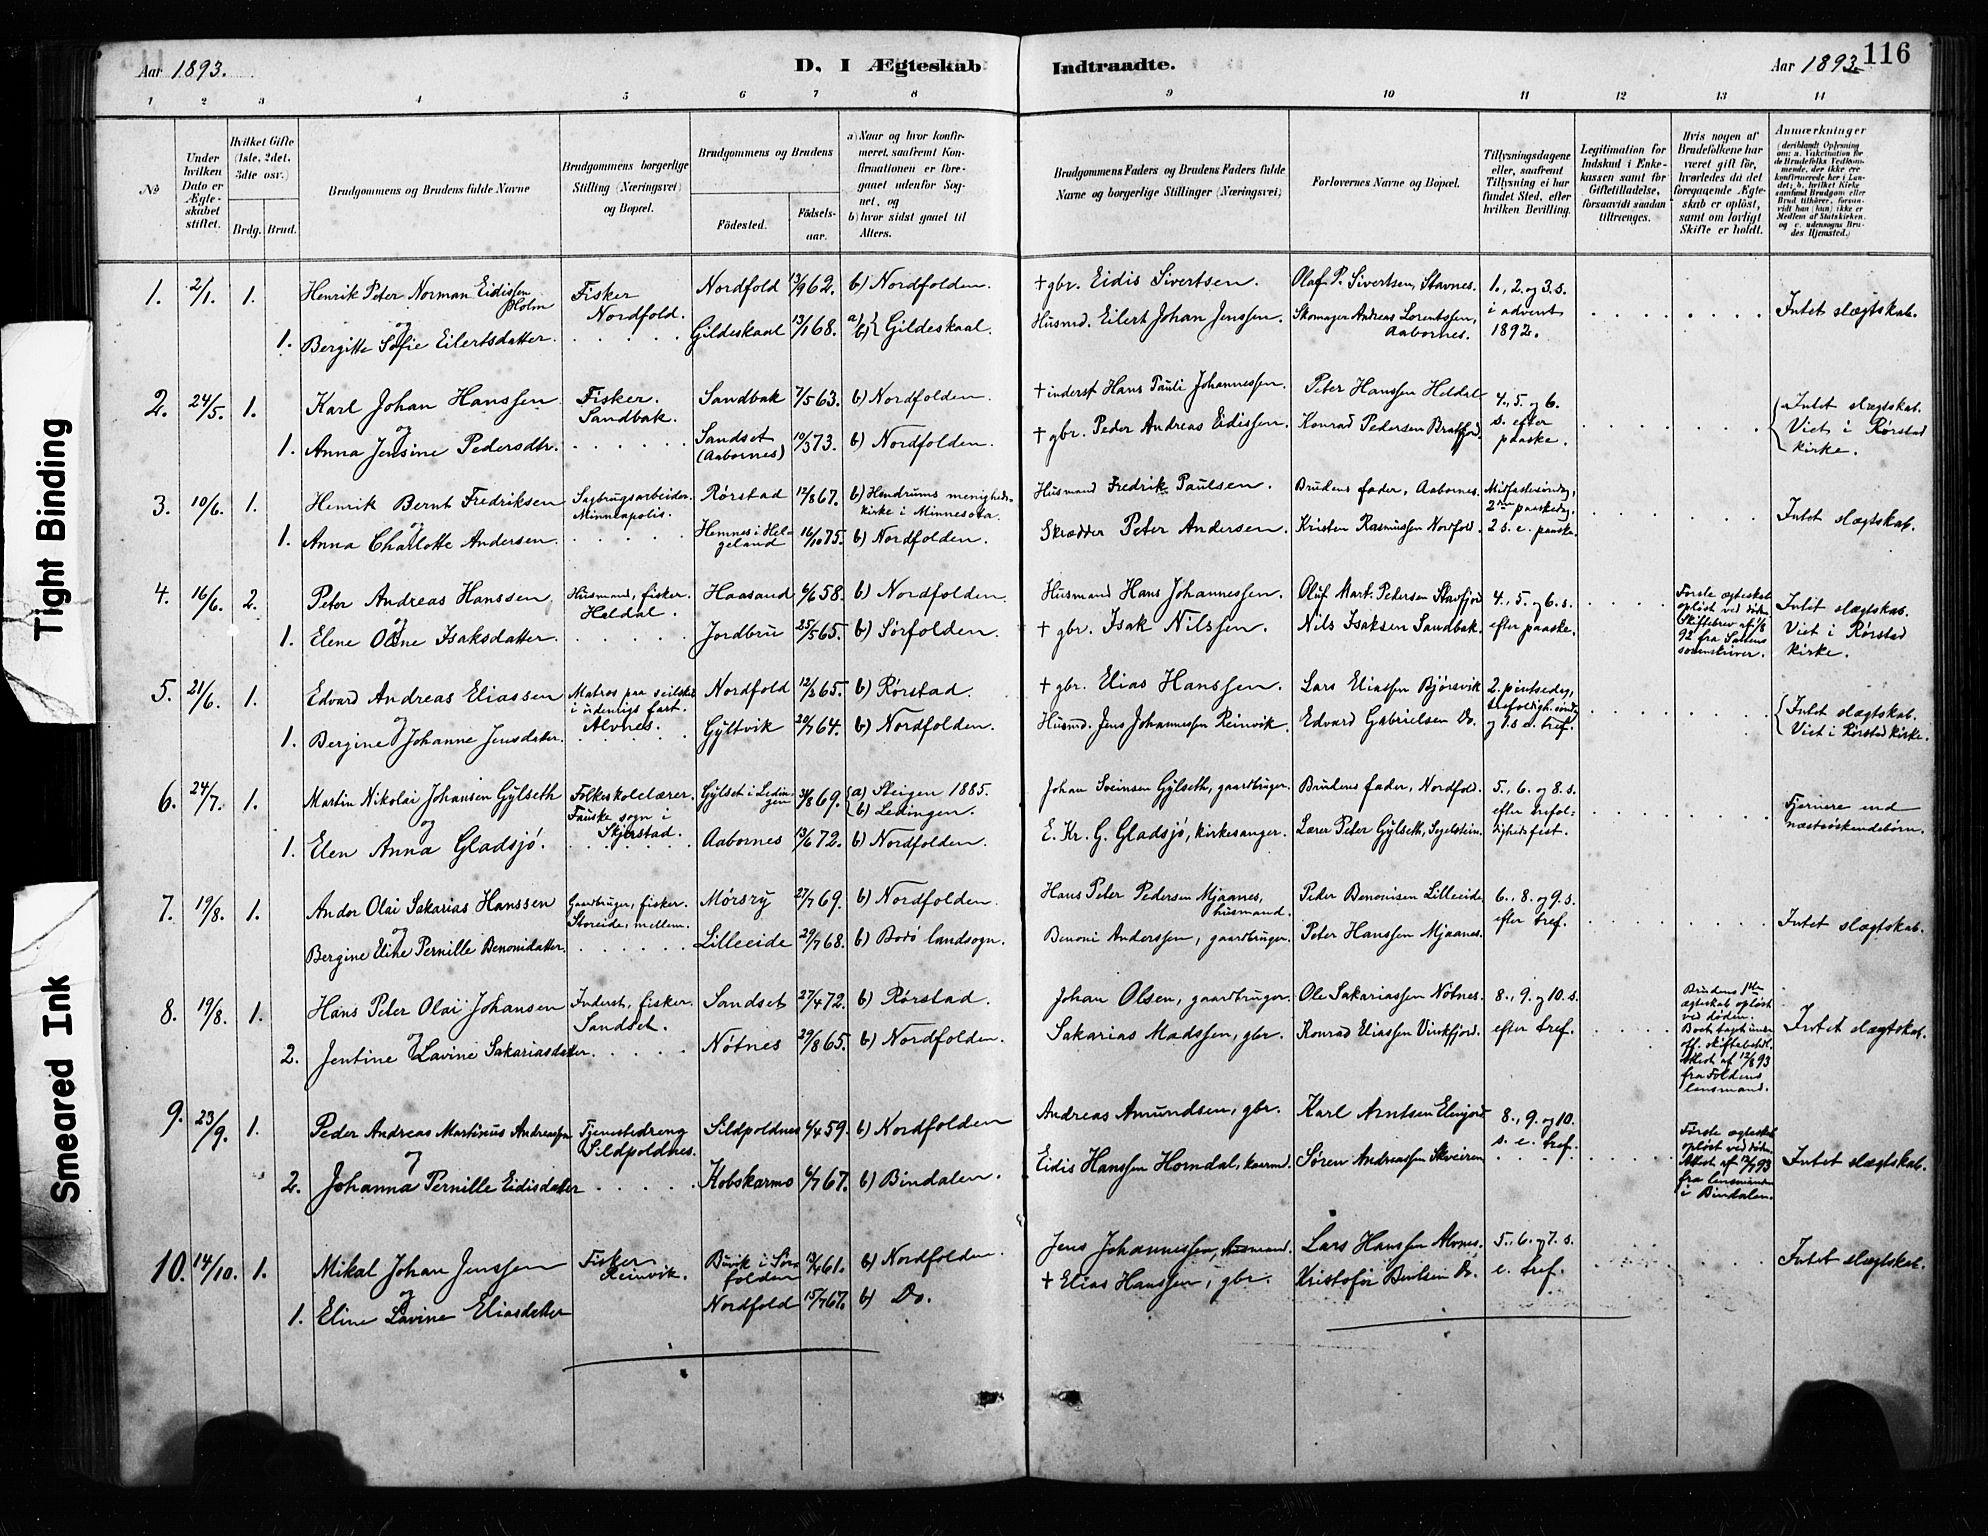 Aar 1893.
D, I Ægteskab Indtraadte.
Aar 1893.
116
1 2 3 4 5 6 7 8 9 10 11 12 13 14
No
Under hvilken Dato er Ægteskabet stiftet.
Hvilket Gifte (1ste, 2det, 3die osv.)
Brdg. Brud.
Brudgommens og Brudens fulde Navne
Brudgommens borgerlige Stilling (Næringsvei) og Bopæl.
Brudgommens og Brudens
Fødested.
Fødselsaar.
a) Naar og hvor konfirmeret, saafremt Konfirmationen er foregaaet udenfor Sognet, og
b) hvor sidst gaaet til Alters.
Brudgommens Faders og Brudens Faders fulde Navne og borgerlige Stillinger (Næringsvei)
Forlovernes Navne og Bopæl.
Tillysningsdagene eller, saafremt Tillysning ei har fundet Sted, efter hvilken Bevilling.
Legitimation for Indskud i Enkekassen samt for Giftetilladelse, forsaavidt saadan tiltrænges.
Hvis nogen af Brudefolkene har været gift før, hvorledes da det foregaaende Ægteskab er opløst, samt om lovligt Skifte er holdt.
Anmærkninger (deriblandt Oplysning om: a. Vakcination for de Brudefolks Vedkommende, der ikke ere konfirmerede her i Landet; b. hvilket Kirkesamfund Brudgom eller Brud tilhører, forsaavidt han (hun) ikke er Medlem af Statskirken, og c. udensogns Brudes Hjemsted.)
1. 2/1. 1. Henrik Peter Norman Eidissen Holm Fisker Nordfold. Nordfold 13/9 62. b) Nordfolden. † gbr. Eidis Sivertsen. Olaf P. Sivertsen, Stavnes. 1., 2. og 3. s. i advent 1892. Intet slægtskab.
og
1. Bergitte Sofie Eilertsdatter. Gildeskaal 13/1 68. a) b) Gildeskaal. Husmd. Eilert Johan Jenssen. Skomager Andreas Lorentssen, Aabornes.
2. 24/5. 1. Karl Johan Hanssen Fisker. Sandbak. Sandbak 7/5 63. b) Nordfolden. † inderst Hans Pauli Johannessen. Peter Hanssen Heldal 4., 5. og 6. s. efter paaske. Intet slægtskab. Viet i Rørstad kirke.
og
1. Anna Jensine Pedersdtr. Sandset (Aabornes) 10/3 73. b) Nordfolden. † gbr. Peder Andreas Eidissen. Konrad Pedersen Bratfjord.
3. 10/6. 1. Henrik Bernt Fredriksen Sagbrugsarbeider. Minneapolis. Rørstad 12/8 67. b) Hendrums menigheds kirke i Minnesota. Husmand Fredrik Paulsen. Brudens fader, Aabornes. Midfastesøndag, 2den paaskedag, 2 s. e. paaske. Intet slægtskab.
og
1. Anna Charlotte Andersen. Hemnes i Helgeland 16/10 75. b) Nordfolden. Skrædder Peter Andersen. Kristen Rasmussen Nordfold.
4. 16/6. 2. Peter Andreas Hanssen Husmand, fisker. Heldal. Haasand 6/6 58. b) Nordfolden. Husmand Hans Johannessen. Oluf Mart. Pedersen Stavfjord 4., 5. og 6. s. efter paaske. Første ægteskab opløst ved døden Skiftebrev af 1/8 92 fra Saltens sorenskriver. Intet slægtskab. Viet i Rørstad kirke.
og
1. Elene Oline Isaksdatter. Jordbru 25/5 65. b) Sørfolden. † gbr. Isak Nilssen. Nils Isaksen Sandbak.
5. 21/6. 1. Edvard Andreas Eliassen Matros paa seilskib i udenligs fart. Alvnes. Nordfold 12/2 65. b) Rørstad. † gbr. Elias Hanssen. Lars Eliassen Bjørsvik 2. pintsedag, trefoldigh. sønd. og 1. s. e. tref. Intet slægtskab. Viet i Rørstad kirke.
og
1. Bergine Johanne Jensdatter. Gyltvik 20/7 64. b) Nordfolden. Husmd. Jens Johannessen Reinvik. Edvard Gabrielsen Do.
6. 24/7. 1. Martin Nikolai Johansen Gylseth Folkeskolelærer. Fauske sogn i Skjerstad. Gylset i Lødingen 31/8 69. a) Steigen 1885. b) Lødingen. Johan Sveinsen Gylseth, gaardbruger. Brudens fader, Nordfold. 5., 6. og 8. s. efter trefoldighedsfest. Fjernere end næstsøskendebørn.
og
1. Elen Anna Gladsjø. Aabornes 13/6 72. b) Nordfolden. E. Kr. G. Gladsjø, kirkesanger. Lærer Peter Gylseth, Segelstein.
7. 19/8. 1. Andor Olai Sakarias Hanssen Gaardbruger, fisker. Storeide, mellem. Mørsry 27/7 69. b) Nordfolden. Hans Peter Pedersen Mjaanes, husmand. Peder Benonisen Lilleeide 6., 8. og 9. s. efter tref. Intet slægtskab.
og
Bergine Eline Pernille Benonidatter. Lilleeide 29/7 68. b) Bodø landsogn. Benoni Anderssen, gaardbruger. Peter Hanssen Mjaanes.
8. 19/8. 1. Hans Peter Olai Johansen Inderst, fisker. Sandset. Sandset 27/4 72. b) Rørstad. Johan Olsen, gaardbruger. Ole Sakariassen Nøtnes. 8., 9. og 10. s. efter tref. Brudens 1ste ægteskab opløst ved døden. Boet tagt under off. skiftebehdl. Attest af 12/8 93 fra Foldens lensmand. Intet slægtskab.
og
2. Jentine Lavine Sakariasdatter. Nøtnes 29/8 65. b) Nordfolden. Sakarias Madssen, gbr. Konrad Eliassen Vinkfjord.
9. 23/9. 1. Peder Andreas Martinus Andreassen Tjenestedreng Sildpoldnes. Sildpoldnes 4/4 59. b) Nordfolden Andreas Amundsen, gbr. Karl Arntsen Elvfjord 8., 9. og 10. s. e. tref. Første ægteskab opløst ved døden. Attest af 12/7 93 fra lensmanden i Bindalen. Intet slægtskab.
og
2. Johanna Pernille Eidisdatter Kobskarmo 6/7 67. b) Bindalen. Eidis Hanssen Horndal, kaarmd. Søren Andreassen Skveiren
10. 14/10. 1. Mikal Johan Jenssen Fisker Reinvik. Buvik i Sørfolden 13/4 61. b) Nordfolden. Jens Johannessen, husmand. Lars Hanssen Alvnes. 5., 6. og 7. s. e. tref. Intet slægtskab.
og
1. Eline Lavine Eliasdatter Nordfold 15/7 67. b) Do. † Elias Hanssen, gbr. Kristofer Do.
Tight Binding
Smeared Ink